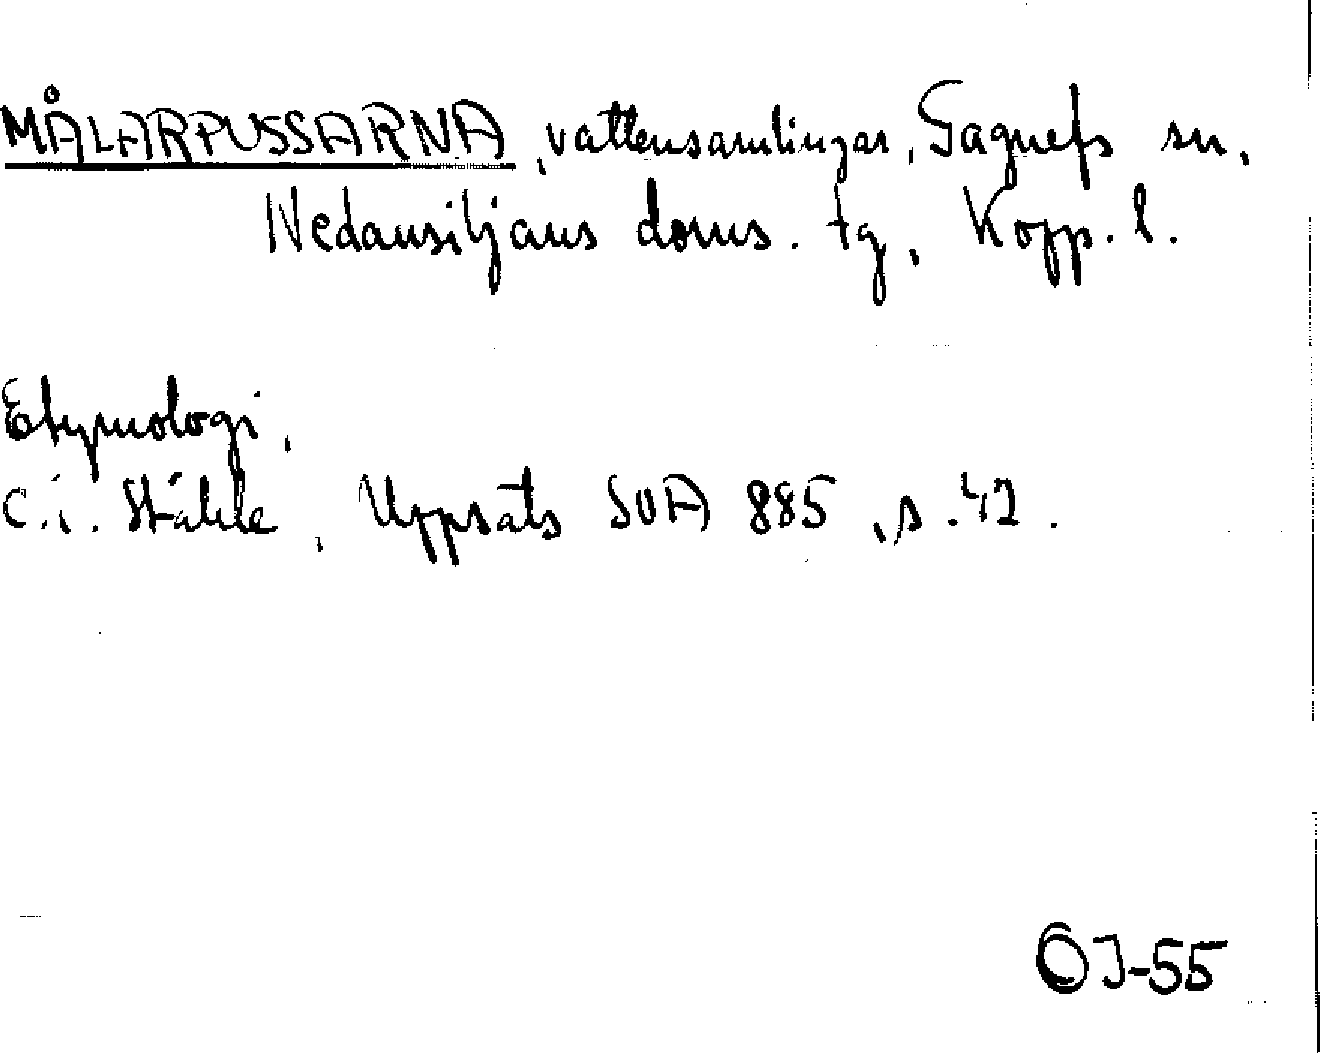 MÅLARPUSSARNA, vattensamlingar, Gagnefs sn,
Nedansiljans doms. tg, Kopp. l.
Etymologi,
C.I. Ståhle, Uppsats SOA 885, s. 42.
OJ-55